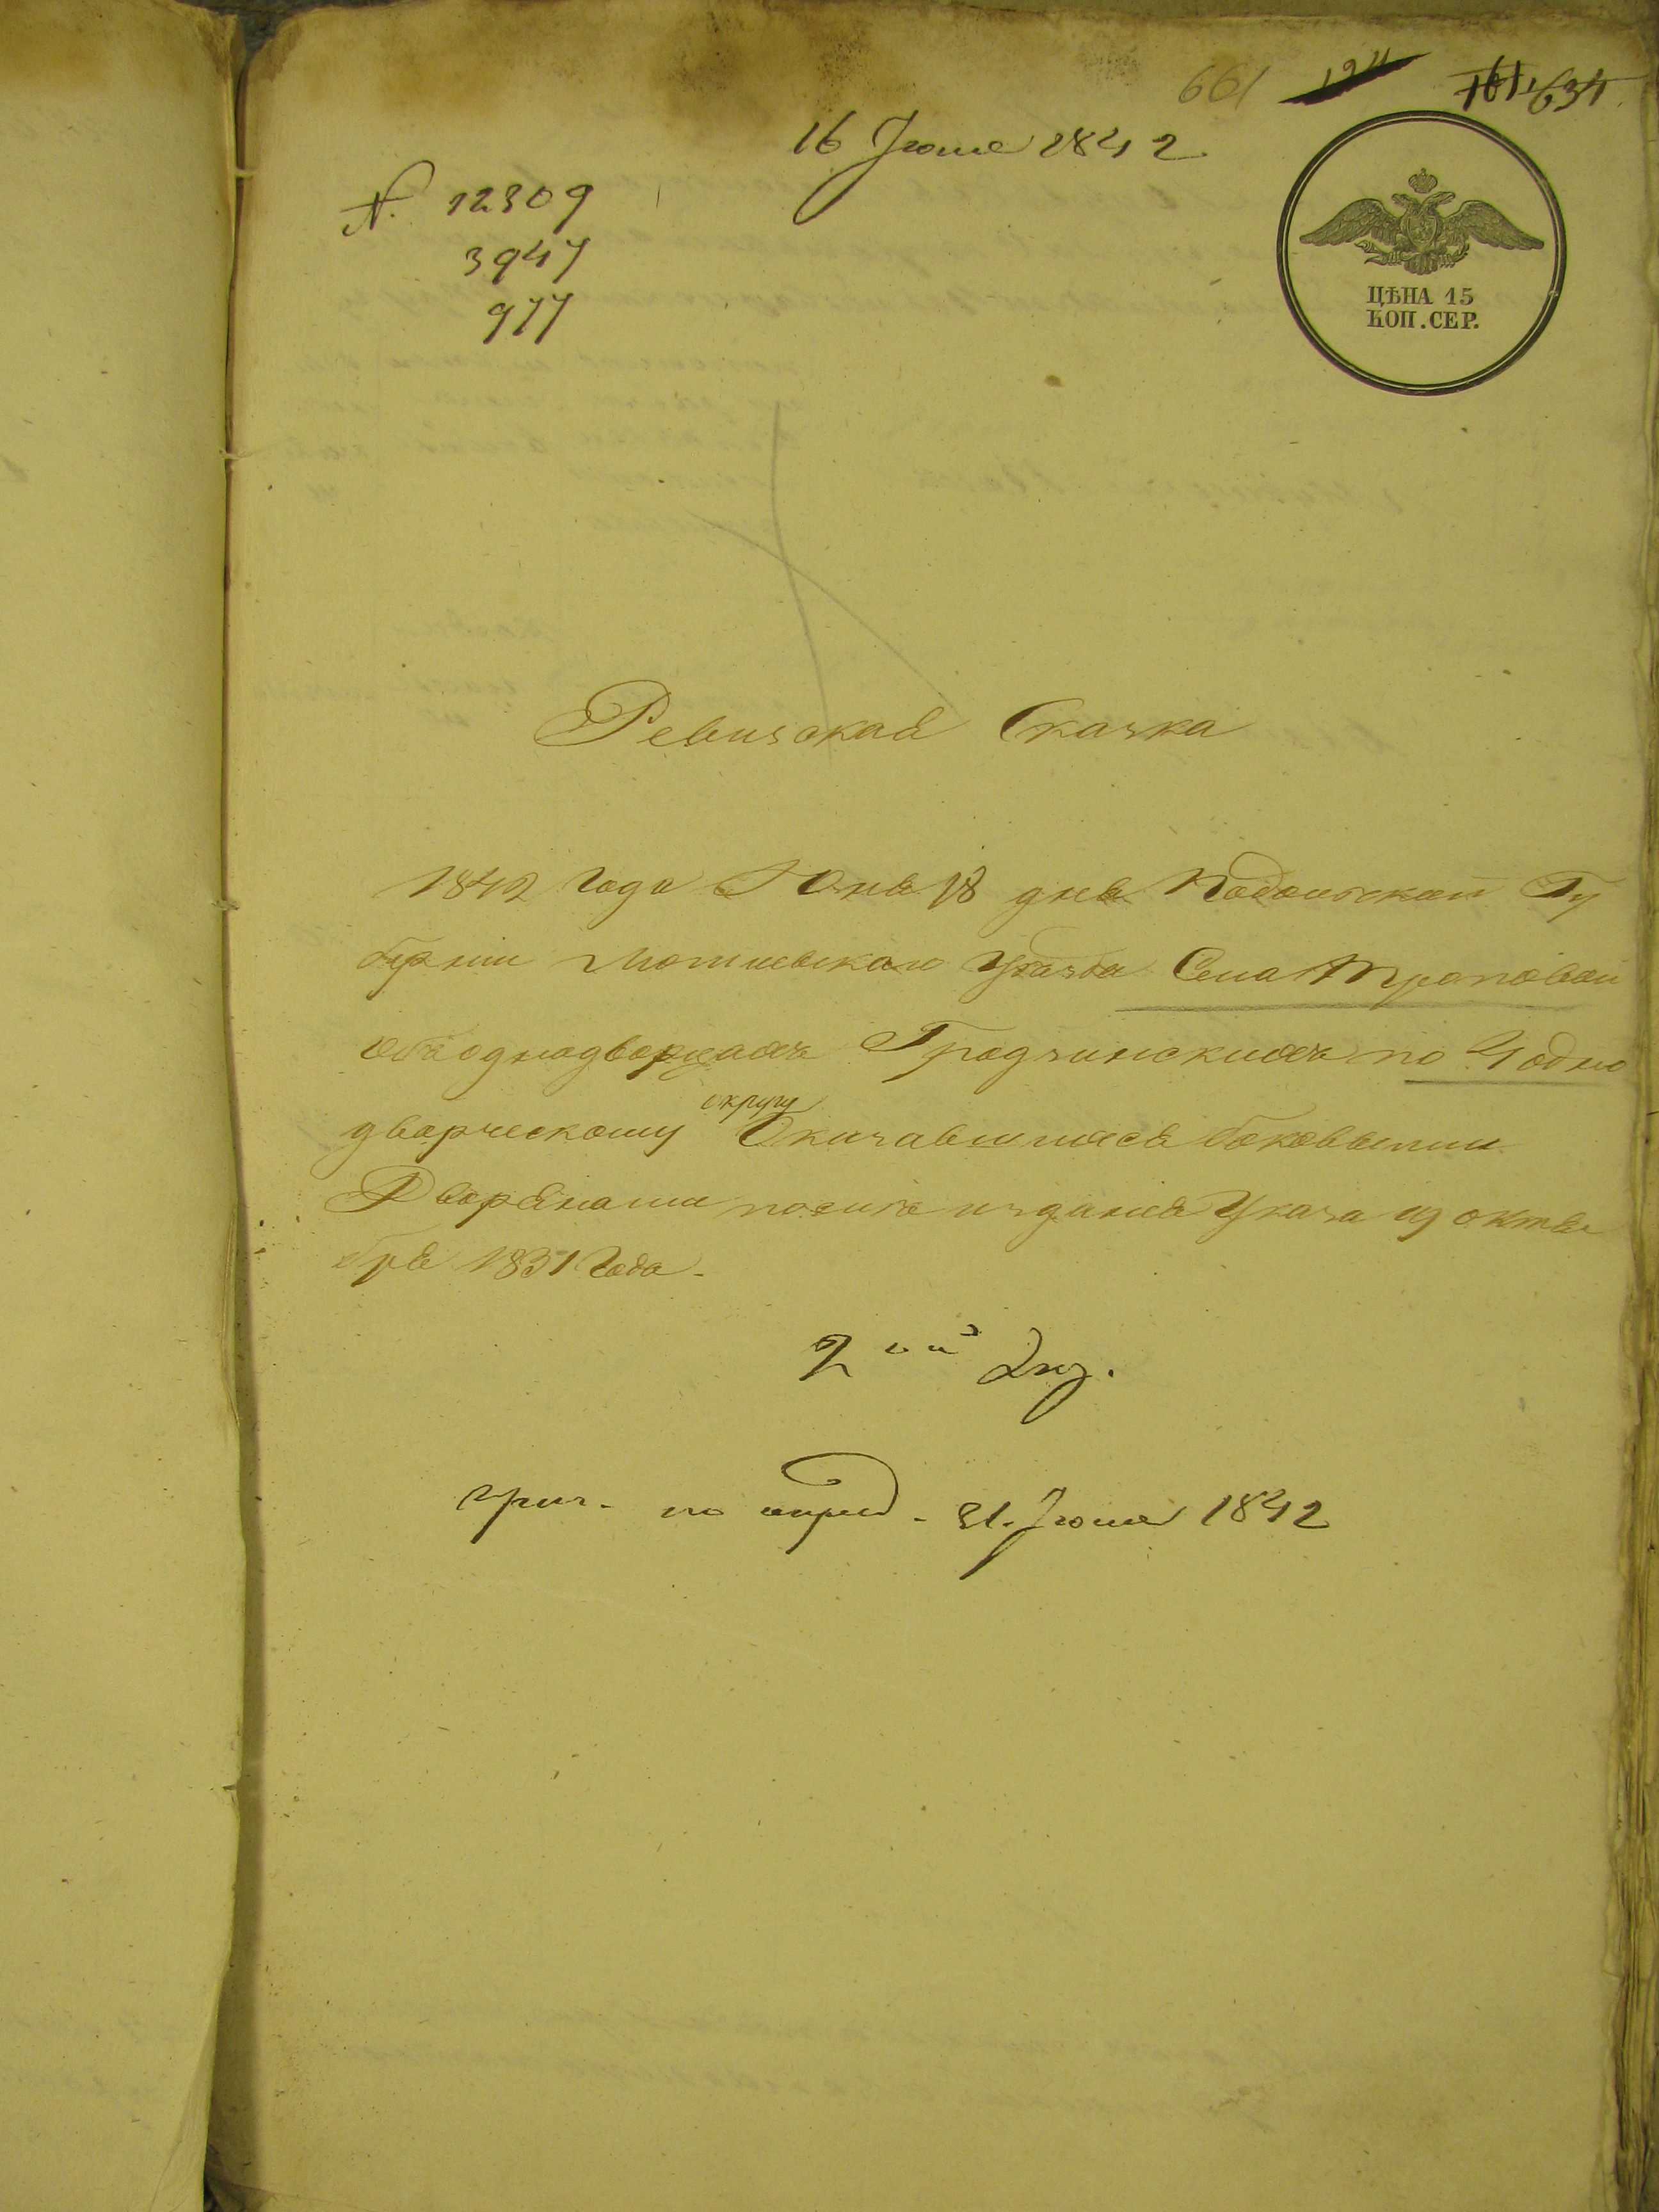 661 161 634
16 Июля 1842
№ 12309
3947
977
ЦѢНА 15
КОП. СЕР.
Ревизская Сказка
1842 года Юня 18 дня Подольской Гу
берніи Могилевского Уѣзда Села Троповой
объ однодворцахъ Градзинскихъ по 4 одно
дворческому округу
Оказавшихся таковыми
Дворянами послѣ изданія Указа 19 октя
бря 1831 Года.
2ой Экз.
31. Июля 1842